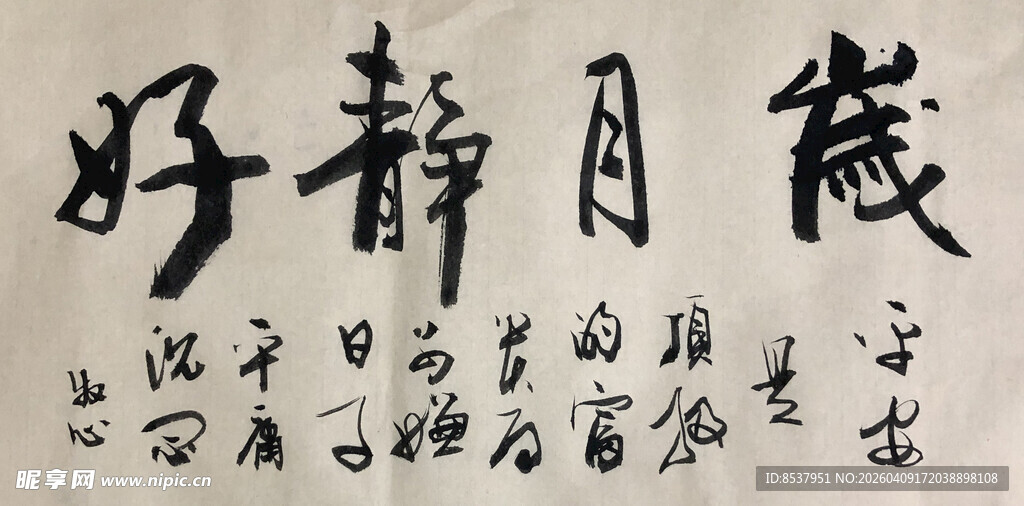 歲月靜好
平安
是
頂級
的富
贵
勿嫌
日子
平庸
昵享网 www.nipic.cn
ID:8537951 NO:20260409172038898108